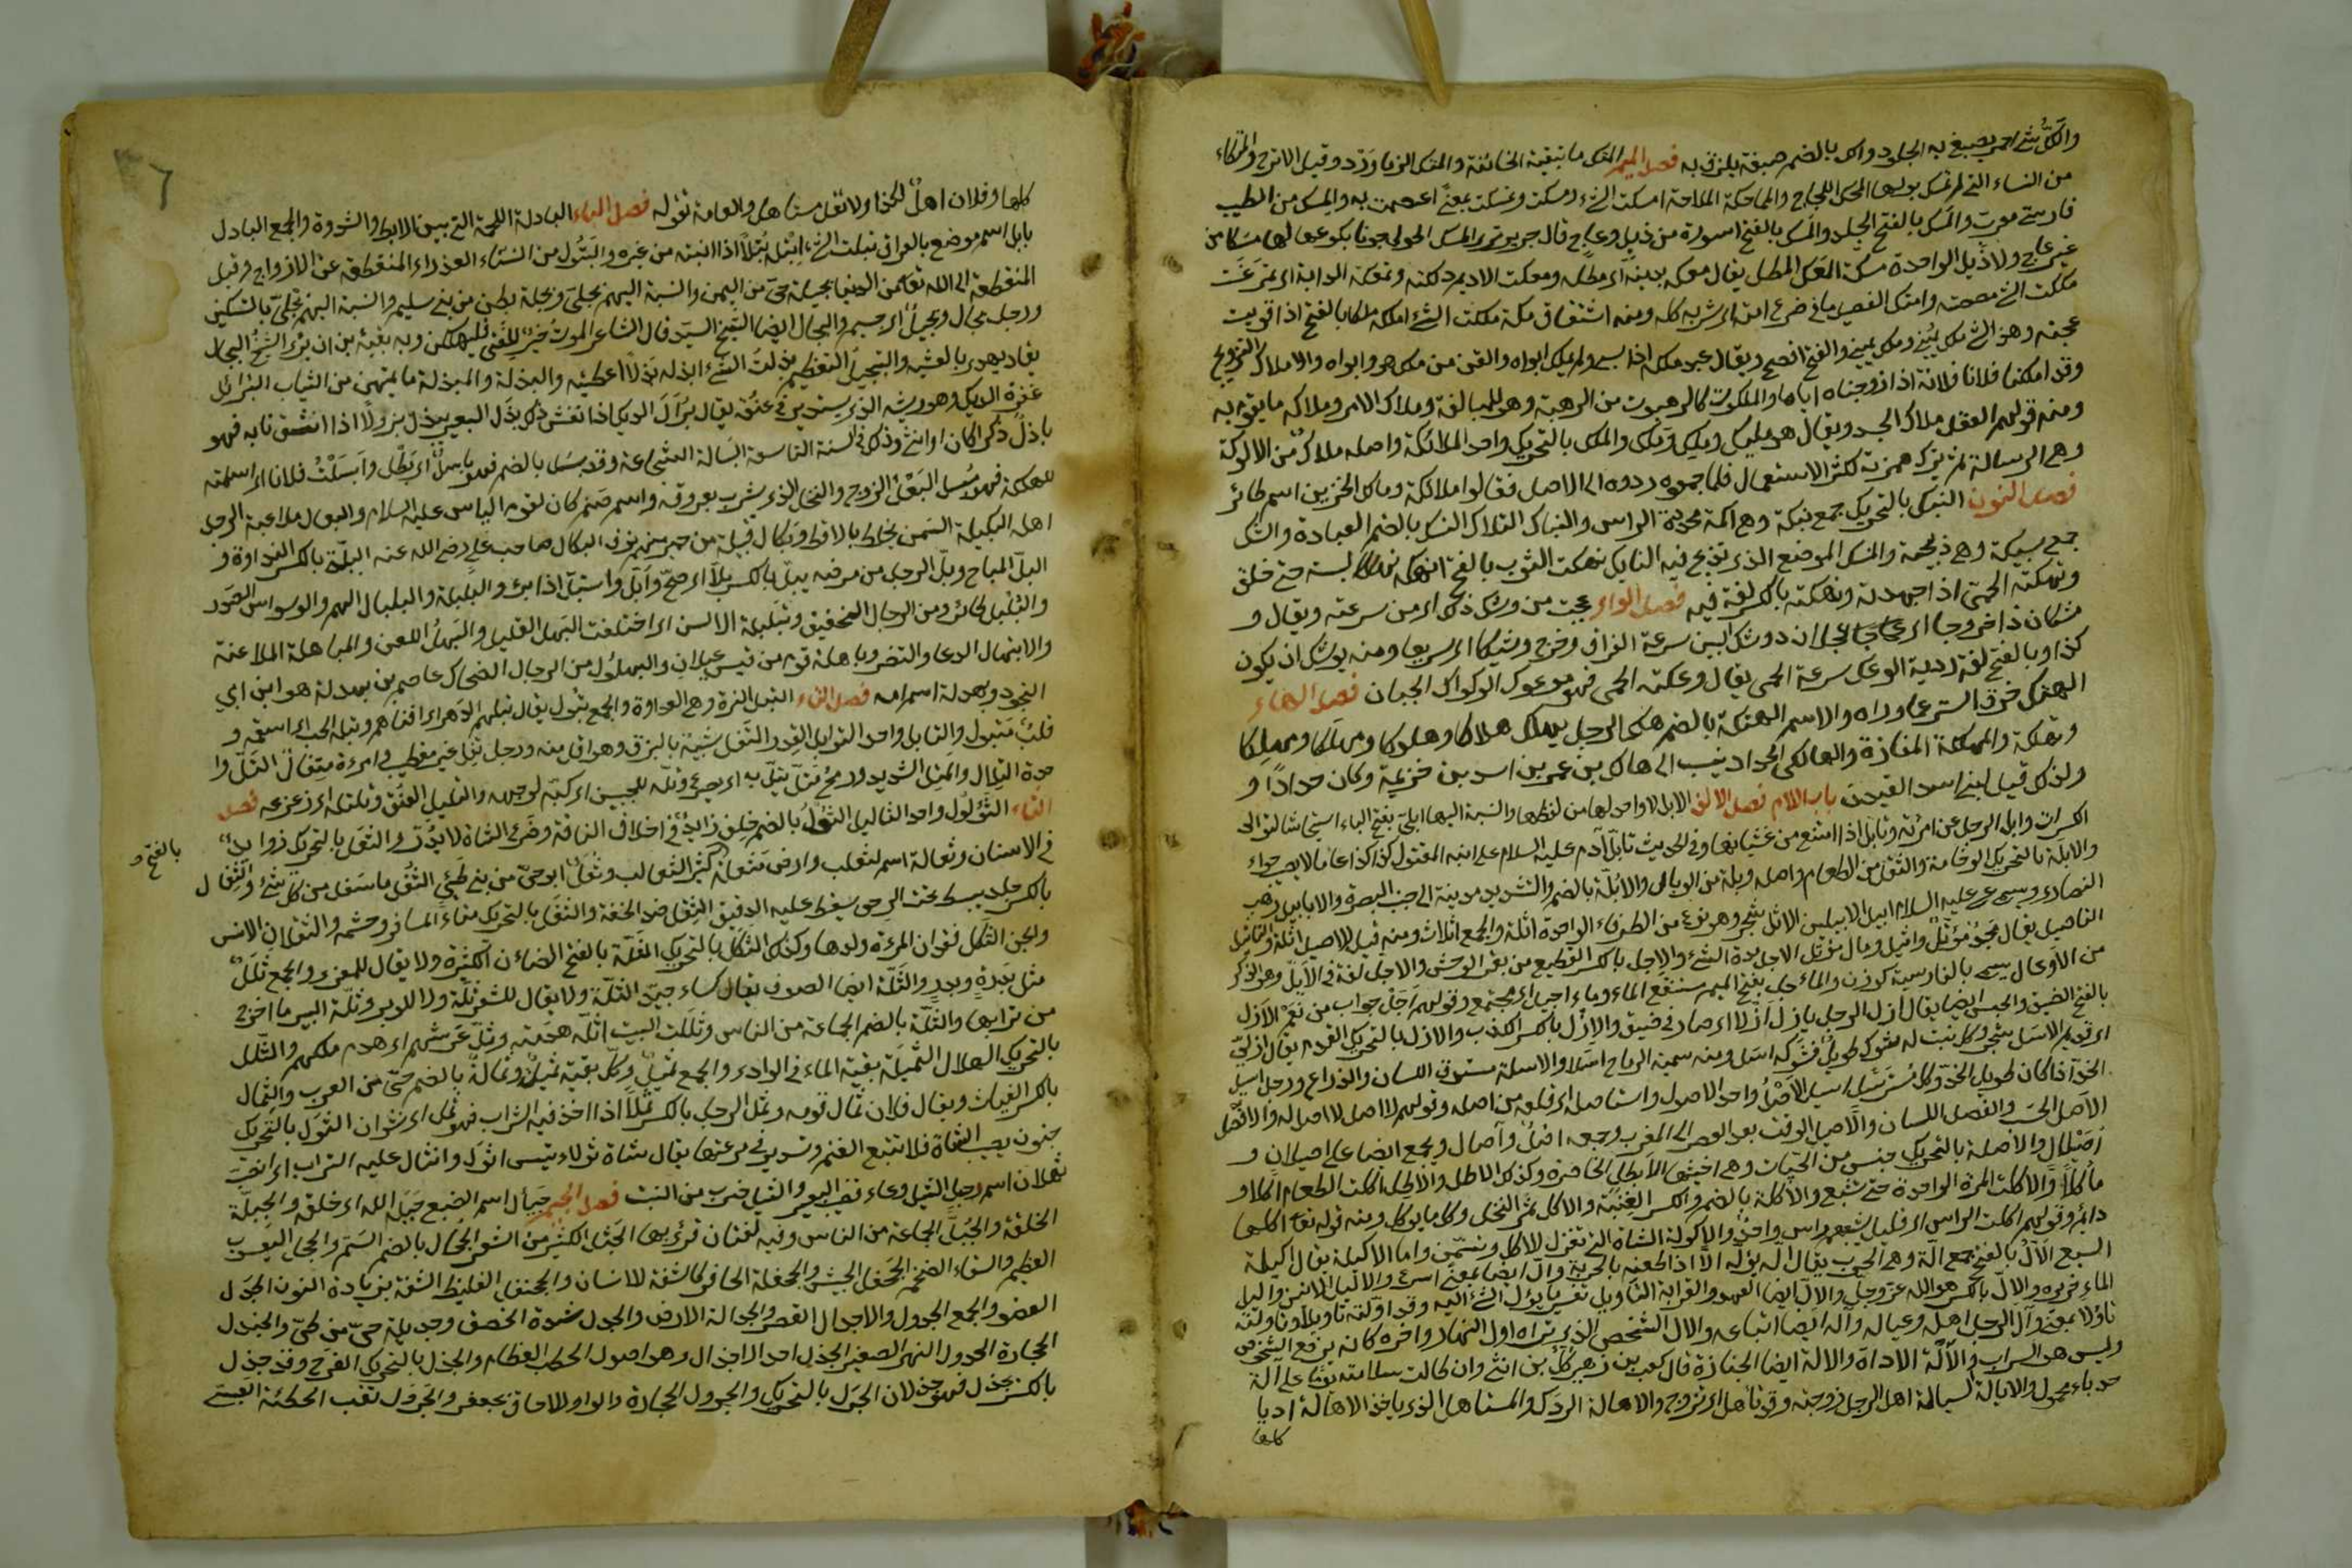 واللك شئ احمر يصبغ به الجلود واللك بالضم صبغة يلزق به فصل الميم المتك ما تبقيه الخاتنة والمتك الزماورد وقيل الاترج والمتكاء
من النساء التى لم تمسك بولها المحك اللجاج والمماحكة الملاحة امسكت الشئ ومسكت وتمسكت بمعنى اعتصمت به والمسك من الطيب
فارسى معرب والمسك بالفتح الجلد والمسك بالفتح اسورة من ذبل وعاج قال جرير ترى المسك الحولى جونا بكوعها لها مسكا من
غير عاج ولا ذبل الواحدة مسكة المعك المطل يقال معكه بدينه اى مطله ومعكت الاديم دلكته وتمعكت الدابة اى تمرغت
مككت الشئ مصصته وامتك الفصيل ما فى ضرع امه اى شربه كله ومنه اشتقاق مكة ملكت الشئ املكه ملكا بالفتح اذا قويت
عجنه وهذا الشئ ملك يمينى وملك يمينى والفتح افصح ويقال عبد مملكة اذا سبى ولم يملك ابواه والقن من ملك هو وابواه والاملاك التزويج
وقد املكنا فلانا فلانة اذا زوجناه اياها والملكوت كالرهبوت من الرهبة وهو للمبالغة وملاك الامر وملاكه ما يقوم به
ومنه قولهم العقل ملاك الجسد ويقال هو مليك ومليك وملك وملك والملك بالتحريك واحد الملائكة واصله ملأك من الالوكة
وهى الرسالة ثم ترك همزته لكثرة الاستعمال فلما جمعوه ردوه الى الاصل فقالوا ملائكة ومالك الحزين اسم طائر
فصل النون النبك بالتحريك جمع نبكة وهى اكمة محددة الراس والنباك التلال النسك بالضم العبادة والنسك
جمع نسيكة وهى ذبيحة والمنسك الموضع الذى تذبح فيه النسايك نهكت الثوب بالفتح انهكه نهكا لبسته حتى خلق
ونهكته الحمى اذا اجهدته ونهكته بالكسر لغة فيه فصل الواو عجبت من وشك ذلك اى من سرعته ويقال و
شكان ذا خروجا اى عجلان ذو وشك البين سرعة الفراق وخرج وشيكا اى سريعا ومنه يوشك ان يكون
كذا وبالفتح لغة ردية الوعك سرعة الحمى يقال وعكته الحمى فهو موعوك الوكواك الجبان فصل الهاء
الهتك خرق الستر عما وراه والاسم الهتكة بالضم هلك الرجل يهلك هلاكا وهلوكا ومهلكا ومهلكا
وتهلكة والمهلكة المفازة والهالكى الحداد ينسب الى هالك بن عمرو بن اسد بن خزيمة وكان حدادا و
ولذلك قيل لبنى اسد القيون باب اللام فصل الالف الابل لا واحد لها من لفظها والنسبة اليها ابلى بفتح الباء استيحاشا لتوالى
الكسرات وابل الرجل عن امرأته وتابل اذا امتنع من غشيانها وفى الحديث تأبل آدم عليه السلام على ابنه المقتول كذا كذا عاما لا يصيب حواء
والابلة بالتحريك الوخامة والثقل من الطعام واصله وبلة من الوبال والابلة بالضم والتشديد مدينة الى جنب البصرة والابابيل
النصارى ويسمى عيسى عليه السلام ابيل الابيلين الاثل شجر وهو نوع من الطرفاء الواحدة اثلة والجمع اثلاث ومنه قيل للاصيل اثلة والتأثيل
التأصيل يقال مجد مؤثل واثيل ومال مؤثل الاجل مدة الشئ والاجل بالكسر القطيع من بقر الوحش والاجل لغة فى الايل وهو الذكر
من الاوعال يسمى بالفارسية كوزن والمأجل بفتح الميم مستنقع الماء وماء اجيل اى مجتمع وقولهم اجل جواب من نعم الازل
بالفتح الضيق والحبس ايضا يقال ازل الرجل يازل ازلا اى صار فى ضيق والازل بالكسر الكذب والازل بالتحريك القدم يقال ازلى
اى قديم الاسل شجر وكل نبت له شوك طويل فشوكه اسل ومنه سمية الرماح اسلا والاسلة مستدق اللسان والذراع ورجل اسيل
الخد اذا كان طويل الخد وكل مسترسل اسيل الاصل واحد الاصول واستاصله اى قلعه من اصله وقولهم لا اصل له ولا
الاصل الحسب والفصل اللسان والاصيل الوقت بعد العصر الى المغرب وجمعه اصل وآصال ويجمع ايضا على اصيلان و
اصيلال والاصلة بالتحريك جنس من الحيات وهى اخبثها الايطل الخاصرة وكذلك الاطل والاطل اكلت الطعام اكلا و
مأكلا والاكلة المرة الواحدة حتى تشبع والاكلة بالضم والكسر الغيبة والاكل ثمر النخل وكل ما يوكل ومنه قوله تعا اكلها
دائم وقولهم اكلت الراس اى قليل شعر رأس واحد والاكولة الشاة التى تعزل للاكل وتسمن واما الاكيلة يقال اكيلة
السبع الأل بالفتح جمع ألة وهى الحربة يقال اله يؤله الا اذا طعنه بالحربة وأل ايضا بمعنى اسرع والاليل الانين والليل
الماء خريره والال بالكسر هو الله عز وجل والال ايضا العهد والقرابة التأويل تفسير ما يؤل الشئ اليه وقد اولته تأويلا وتأولته
تأولا بمعنى وآل الرجل اهله وعياله وآله ايضا اتباعه والال الشخص الذى تراه اول النهار واخره كانه يرفع الشخوص
وليس هو السراب والآلة الاداة والالة ايضا الجنازة قال كعب بن زهير كل بن انثى وان طالت سلامته يوما على الة
حدباء محمول والايالة السياسة اهل الرجل زوجته وقد تأهل اى تزوج والاهالة الودك والمستأهل الذى ياخذ الاهالة او يا
كلها
٦
كلها وفلان اهل لكذا ولا تقل مستاهل والعامة تقوله فصل الباء البادلة اللحمة التى بين الابط والثندوة والجمع البادل
بابل اسم موضع بالعراق بتلت الشئ ابتله بتلا اذا ابنته من غيره والبتول من النساء العذراء المنقطعة عن الازواج وقيل
المنقطعة الى الله تعا من الدنيا بجيلة حى من اليمن والنسبة اليهم بجلى وبجلة بطن من بنى سليم والنسبة اليهم بجلى بالتسكين
ورجل بجال وبجيل اى جسيم والبجال ايضا الشيخ السيد قال الشاعر الموت خير للفتى فليهلكن وبه بقية من ان يرى الشيخ البجال
يقاد يهدى بالعشية والتبجيل التعظيم بذلت الشئ ابذله بذلا اعطيته والبذلة والمبذلة ما يمتهن من الثياب البرائل
عفرة الديك وهو ريشه الذى يستدير فى عنقه يقال برأل الديك اذا نفش ذلك بزل البعير يبزل بزولا اذا انشق نابه فهو
بازل ذكرا كان او انثى وذلك فى السنة التاسعة البسالة الشجاعة وقد بسل بالضم فهو باسل اى بطل وابسلت فلانا اى اسلمته
للهلكة فهو مبسل البعل الزوج والنخل الذى يشرب بعروقه واسم صنم كان لقوم الياس عليه السلام والبعال ملاعبة الرجل
اهله البكيلة السمن يخلط بالاقط وبكال قبيلة من حمير منهم نوف البكالى صاحب على رضى الله عنه البلة بالكسر النداوة و
البل المباح وبل الرجل من مرضه يبل بالكسر بلا اى صح وابل واستبل اذا برئ والبلبلة والبلبال الهم والوسواس الصدر
والبلبل طائر ومن الرجال الخفيف وتبلبلة الالسن اى اختلفت البهل القليل والبهل اللعن والمباهلة الملاعنة
والابتهال الدعا والتضرع وباهلة قوم من قيس عيلان والبهلول من الرجال الضحاك عاصم بن بهدلة هو ابن ابى
النجود وبهدلة اسم امه فصل التاء التبل الترة وهى العداوة والجمع تبول يقال تبلهم الدهر اى افناهم وتبله الحب اى اسقمه و
قلب متبول والتابل واحد التوابل القدر التفل شبيه بالبزق وهو اقل منه ورجل تفل غير مطيب وامرأة متفال التل وا
حدة التلال والمتل الشديد ورمح متل يتل به اى يصرع وتله للجبين اى كبه لوجهه والتليل العنق وتلتله اى زعزعه فصل
الثاء الثؤلول واحد الثاليل الثعل بالضم خلف زايد فى اخلاف الناقة وضرع الشاة لا يدر والثعل بالتحريك زوايد
فى الاسنان وثعالة اسم لثعلب وارض مثعلة كثير الثعالب وثعل ابو حى من بنى طيئ الثفل ما سفل من كل شئ والثفال
بالفتح و
بالكسر جلد يبسط تحت الرحى يسقط عليه الدقيق الثقل ضد الخفة والثقل بالتحريك متاع المسافر وحشمه والثقلان الانس
والجن الثكل فقدان المرءة ولدها وكذلك الثكل بالتحريك الثلة بالفتح الضائن الكثيرة ولا يقال للمعزى والجمع ثلل
مثل بدرة وبدر والثلة ايضا الصوف يقال كساء جيد الثلة ولا يقال للشعر ثلة ولا للوبر وثلة البير ما اخرج
من ترابها والثلة بالضم الجماعة من الناس وثللت البيت اثله هدمته وثل عرشهم اى هدم ملكهم والثلل
بالتحريك الهلاك الثميلة بقية الماء فى الوادى والجمع ثميل وكل بقية ثميل وثمالة بالضم حى من العرب والثمال
بالكسر الغياث ويقال فلان ثمال قومه وثمل الرجل بالكسر ثملا اذا اخذ فيه الشراب فهو ثمل اى نشوان الثول بالتحريك
جنون يصيب الشاة فلا تتبع الغنم وتستدير فى مرعتها يقال شاة ثولاء وتيس اثول وانثال عليه التراب اى انصب
ثهلان اسم جبل الثيل وعاء قضيب البعير والثيل ضرب من النبت فصل الجيم جيأل اسم الضبع جبل الله اى خلقه والجبلة
الخلقة والجبل الجماعة من الناس وفيه لغتان قرئ بهما الجثل الكثير من الشعر الجحال بالضم السم والجحل اليعسوب
العظيم والسقاء الضخم الجحفل الجيش والجحفلة الحافر كالشفة للانسان والجحنفل الغليظ الشفة بزيادة النون الجدل
العضو والجمع الجدول والاجدل القصر والجدالة الارض والجدل شدة الخصف وجديلة حى من طى والجندل
الحجارة الجدول النهر الصغير الجذل احد الاجذال وهو اصول الحطب العظام والجذل بالتحريك الفرح وقد جذل
بالكسر يجذل فهو جذلان الجرل بالتحريك والجرول الحجارة والواو للالحاق بجعفر والجرول لقب الحطيئة العبسى